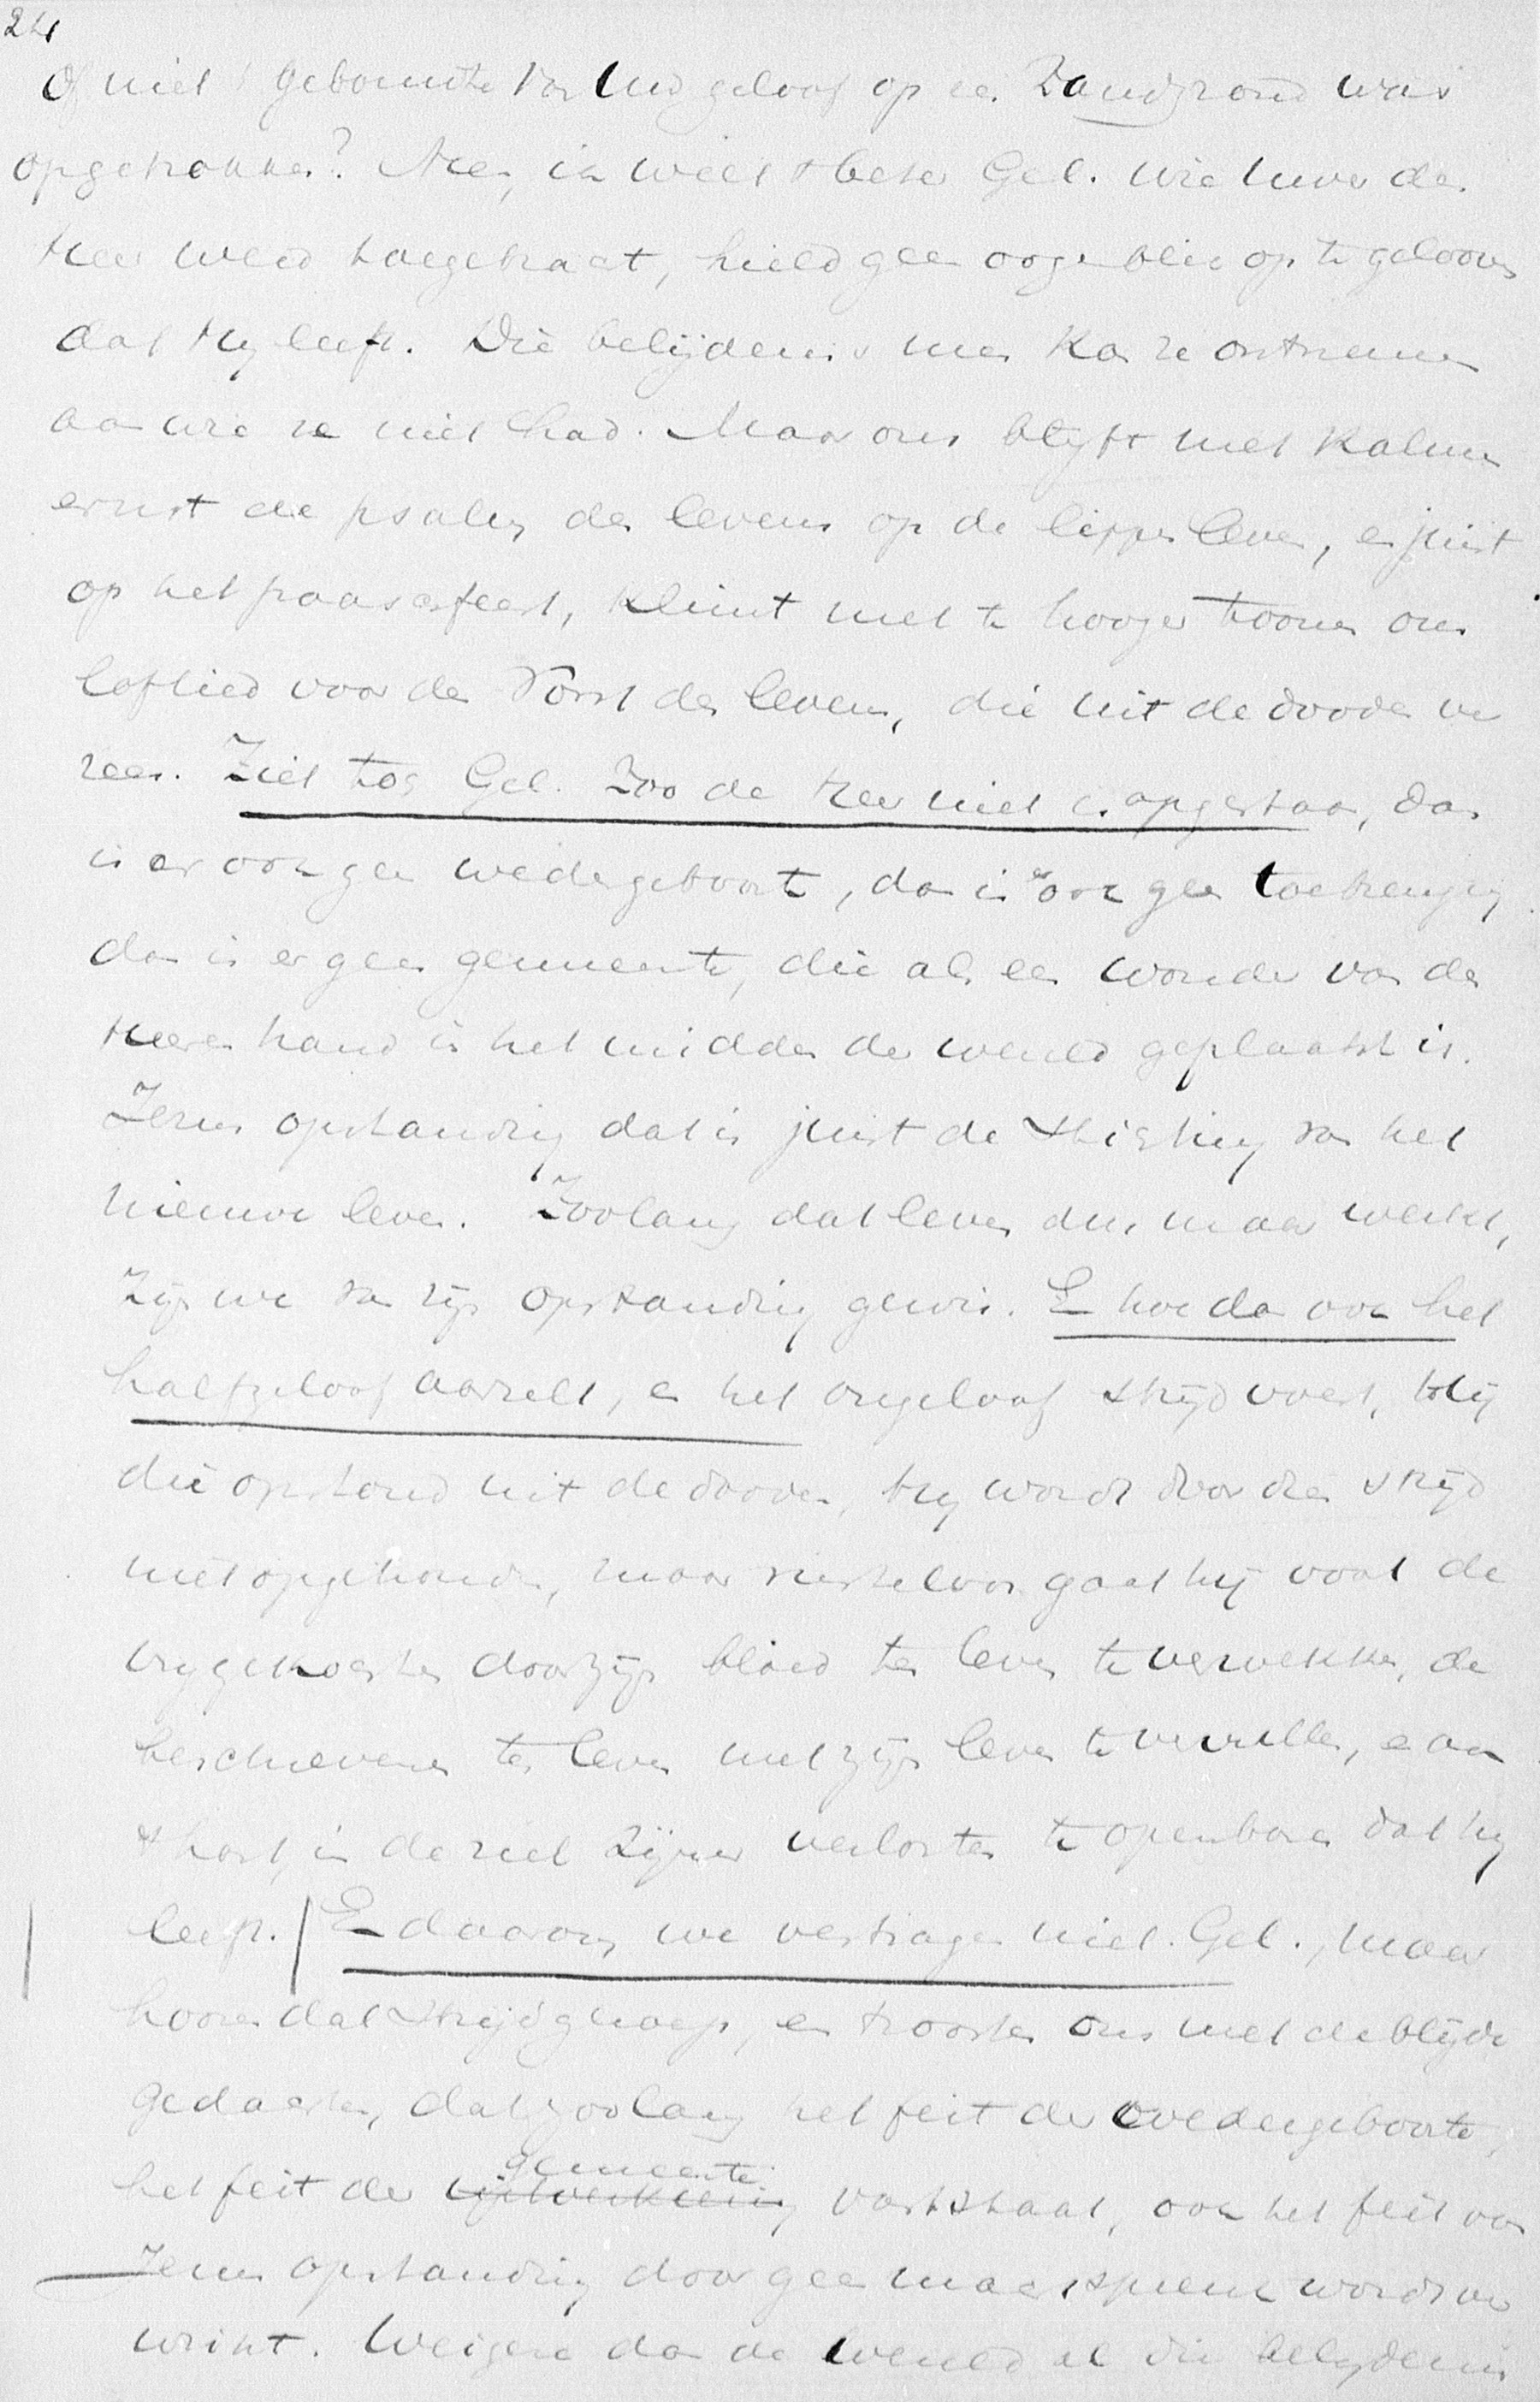 24
Of niet 't gebouwtje van uw geloof op een zandgrond was
opgetrokken? Neen, ik weet 't beter Gel. wie tuwer den
Heer werd toegebracht, hield geen oogenblik op te gelooven
dat Hij leeft. Die belijdenis men kan ze ontnemen
aan wie ze niet had. Maar ons blijft met kalmen
ernst de psalm des levens op de lippen leven, en juist
op het paaschfeest, klimt met te hooger toonen ons
loflied voor den Vorst des levens, die uit de dooden ver
rees. Ziet toe Gel. Zoo de Heer niet is opgestaan, dan
is er ook geen wedergeboorte, dan is er ook geen toebrenging
dan is er geen gemeente, die als een wonder van des
Heeren hand in het midden der wereld geplaatst is.
Jezus opstanding dat is juist de stichting van het
nieuwe leven. Zoolang dat leven dus maar werkt,
zijn we van zijn opstanding gewis. En hoe dan ook het
halfgeloof aarzelt, en het ongeloof strijd voert, Hij
die opstond uit de dooden, hij wordt door dien strijd
niet opgehouden, maar rusteloos gaat hij voort de
vrijgekochten door zijn bloed ten leven te verwekken, de
beschrevenen ten leven met zijn leven te vervullen, en aan
't hart, in de ziel zijner verlosten te openbaren dat hij
leeft. En daarom we vertragen niet. Gel., maar
hooren dat krijgsgeroep, en troosten ons met de blijde
gedachten, dat zoolang het feit der wedergeboorte,
gemeente
het feit der vaststaat, ook het feit van
Jezus opstanding door geen machtspreuk wordt ver
wrikt. Weigere dan de wereld al die belijdenis